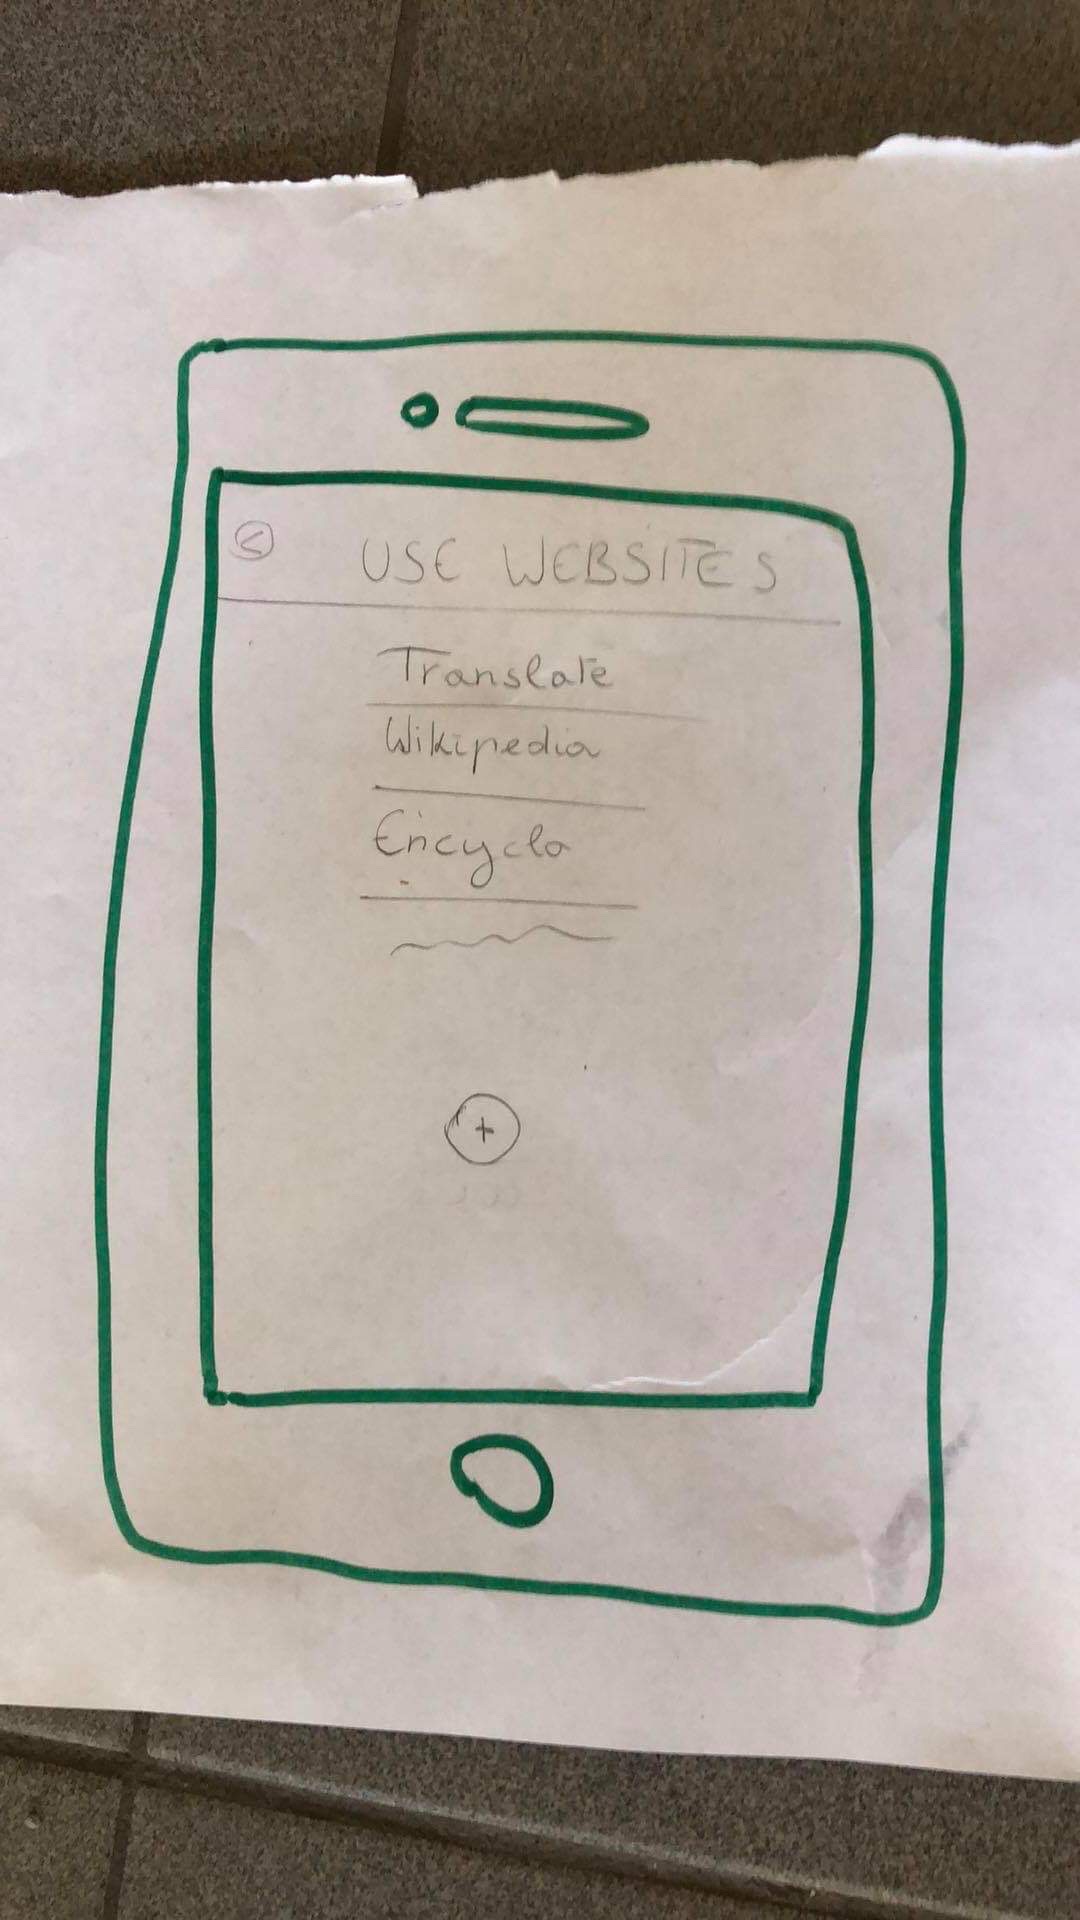 < USE WEBSITES
Translate
Wikipedia
Encyclo
+